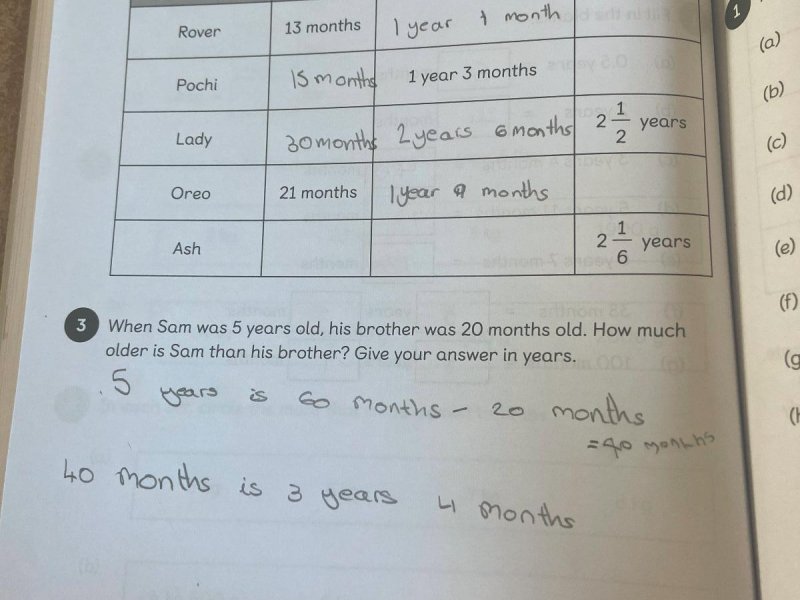 Rover 13 months 1 year 1 month
Pochi 15 months 1 year 3 months
Lady 30 months 2 years 6 months 2 1/2 years
Oreo 21 months 1 year 9 months
Ash 2 1/6 years
3 When Sam was 5 years old, his brother was 20 months old. How much
older is Sam than his brother? Give your answer in years.
5 years is 60 months - 20 months
= 40 months
40 months is 3 years 4 months
1
(a)
(b)
(c)
(d)
(e)
(f)
(g